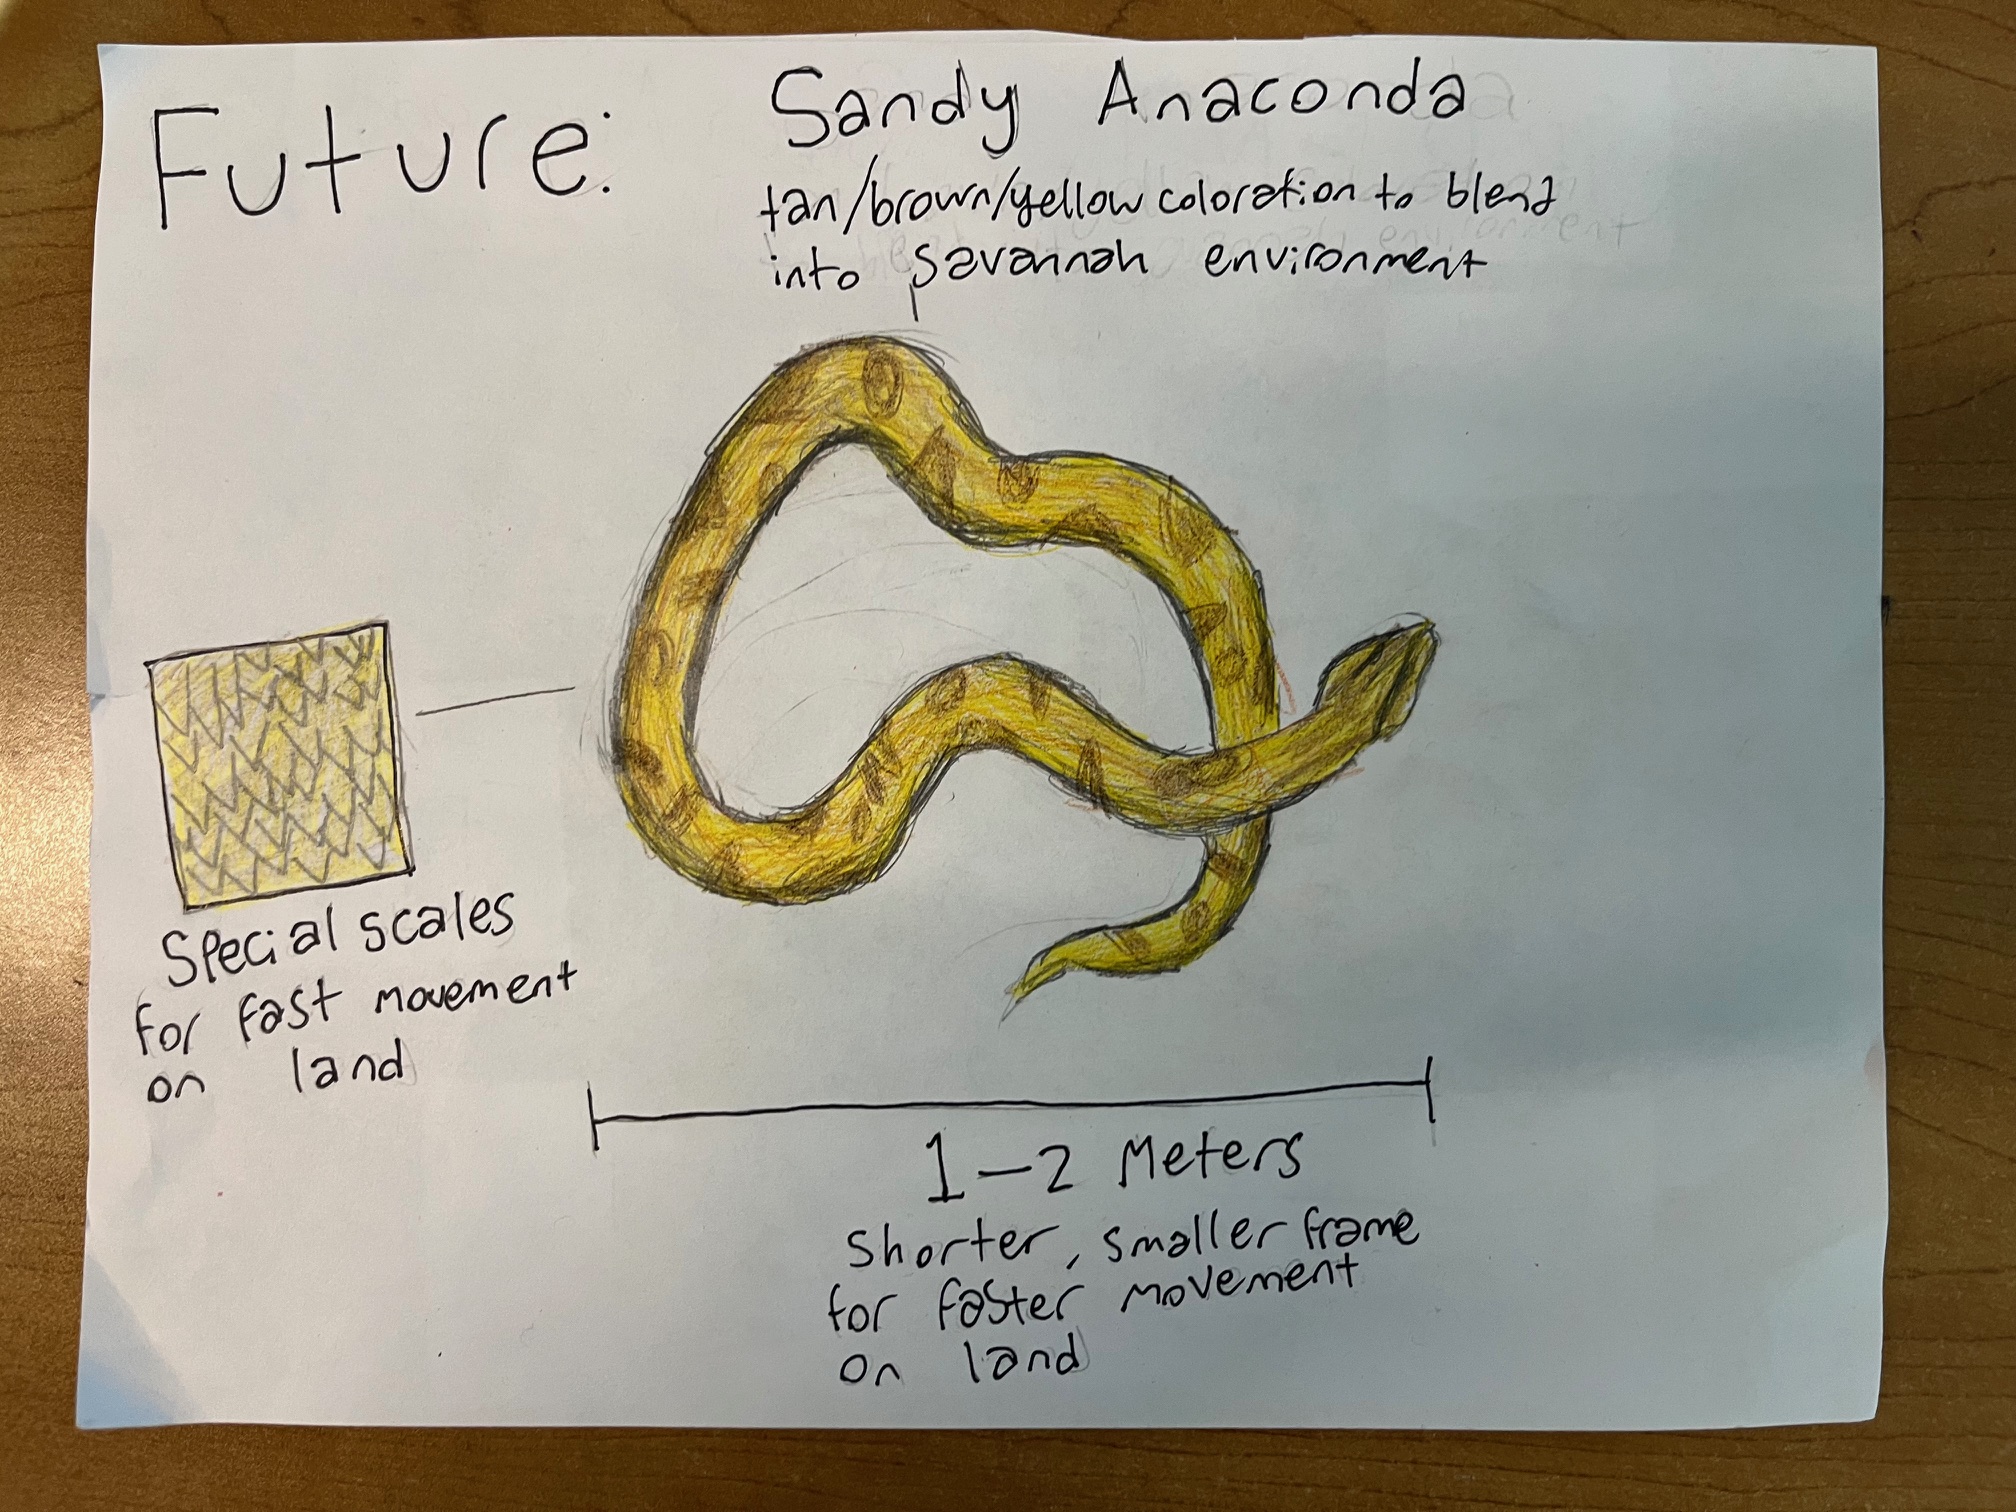 Future:
Sandy Anaconda
tan/brown/yellow coloration to blend
into savannah environment
Special scales
for fast movement
on land
1-2 Meters
Shorter, smaller frame
for faster movement
on land